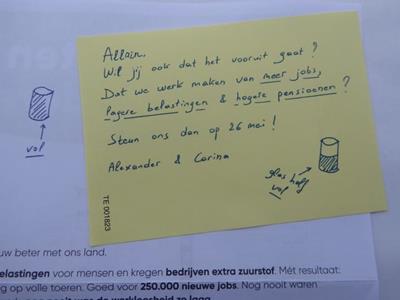 Allain,
Wil jij ook dat het vooruit gaat?
Dat we werk maken van meer jobs,
lagere belastingen & hogere pensioenen?
Steun ons dan op 26 mei!
Alexander & Carina
glas half
vol
TE 001823
vol
uw beter met ons land.
elastingen voor mensen en kregen bedrijven extra zuurstof. Mét resultaat:
g op volle toeren. Goed voor 250.000 nieuwe jobs. Nog nooit waren